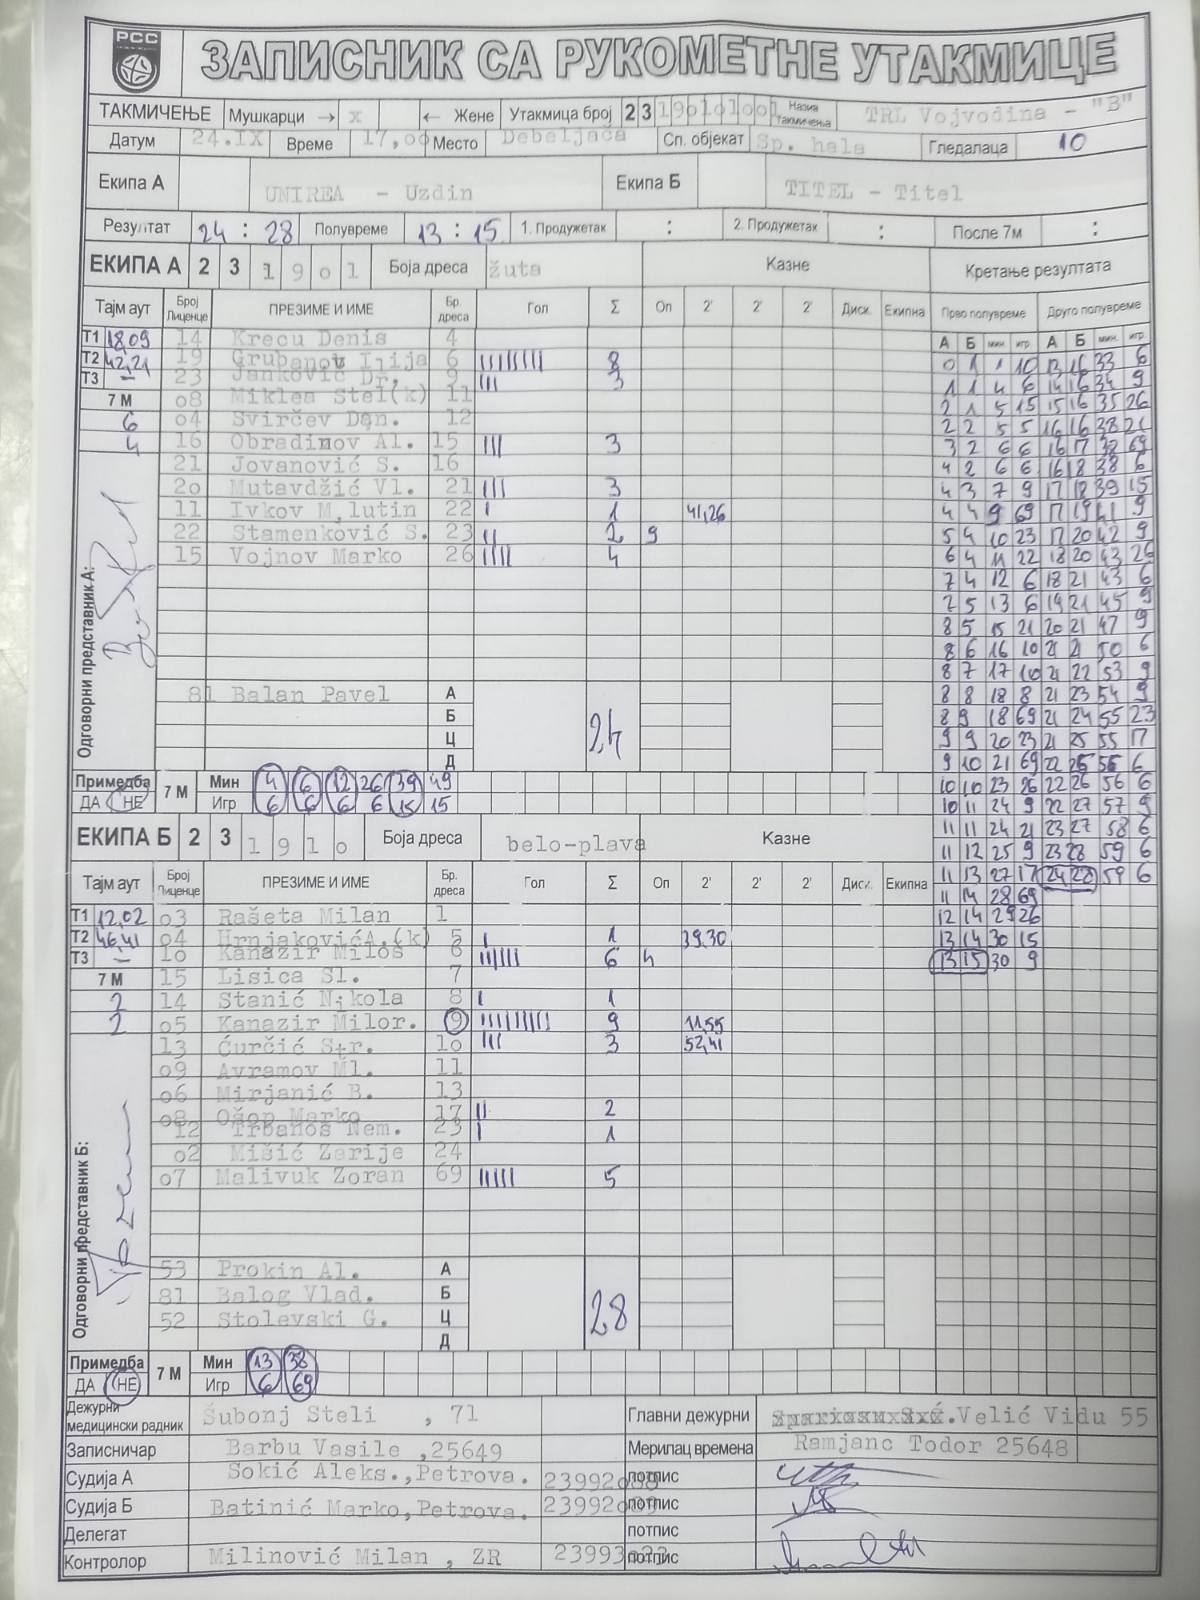 РСС
ЗАПИСНИК СА РУКОМЕТНЕ УТАКМИЦЕ
ТАКМИЧЕЊЕ Мушкарци → x ← Жене Утакмица број 23 19o1o1oo1 Назив такмичења TRL Vojvodina - "B"
Датум 24.IX Време 17,oo Место Debeljača Сп. објекат Sp. hala Гледалаца 10
Екипа А UNIREA - Uzdin Екипа Б TITEL - Titel
Резултат 24 : 28 Полувреме 13 : 15 1. Продужетак : 2. Продужетак : После 7м :
ЕКИПА А 2 3 1 9 o 1 Боја дреса žuta Казне Кретање резултата
Тајм аут Број Лиценце ПРЕЗИМЕ И ИМЕ Бр. дреса Гол Σ Оп 2' 2' 2' Диск. Екипна Прво полувреме Друго полувреме
А Б мин. игр. А Б мин. игр.
Т1 18,09 14 Krecu Denis 4
Т2 42,21 19 Grubanov Ilija 6 IIIIIIII 8
Т3 — 23 Janković Dr. 9 III 3
7 М o8 Miklea Stel(k) 11
6 o4 Svirčev Dan. 12
4 16 Obradinov Al. 15 III 3
21 Jovanović S. 16
2o Mutavdžić Vl. 21 III 3
11 Ivkov M,lutin 22 I 1 41,26
22 Stamenković S. 23 II 2 9
15 Vojnov Marko 26 IIII 4
0 1 1 10 13 16 33 6
1 1 4 6 14 16 34 9
2 1 5 15 15 16 35 26
2 2 5 5 16 16 38 21
3 2 6 6 16 17 38 69
4 2 6 6 16 18 38 6
4 3 7 9 17 18 39 15
4 4 9 69 17 19 41 9
5 4 10 23 17 20 42 9
6 4 11 22 18 20 43 26
7 4 12 6 18 21 43 6
7 5 13 6 19 21 45 9
8 5 15 21 20 21 47 9
8 6 16 10 21 21 50 6
8 7 17 10 21 22 53 9
8 8 18 8 21 23 54 9
8 9 18 69 21 24 55 23
9 9 20 23 21 25 55 17
9 10 21 69 22 25 56 6
10 10 23 26 22 26 56 6
10 11 24 9 22 27 57 9
11 11 24 21 23 27 58 6
11 12 25 9 23 28 59 6
11 13 27 17 24 28 59 6
11 14 28 69
12 14 29 26
13 14 30 15
13 15 30 9
Одговорни представник А:
81 Balan Pavel А
Б
Ц
Д
24
Примедба ДА НЕ 7 М Мин 4 6 12 26 39 49
Игр 6 6 6 6 15 15
ЕКИПА Б 2 3 1 9 1 o Боја дреса belo-plava Казне
Тајм аут Број Лиценце ПРЕЗИМЕ И ИМЕ Бр. дреса Гол Σ Оп 2' 2' 2' Диск. Екипна
Т1 12,02 o3 Rašeta Milan 1
Т2 46,41 o4 HrnjakovićA.(k) 5 I 1 39,30
Т3 — 1o Kanazir Miloš 6 IIIIII 6 4
7 М 15 Lisica Sl. 7
2 14 Stanić Nikola 8 I 1
2 o5 Kanazir Milor. 9 IIIIIIIII 9 11,55
13 Ćurčić Str. 1o III 3 52,41
o9 Avramov Ml. 11
o6 Mirjanić B. 13
o8 Ošop Marko 17 II 2
12 Trbanos Nem. 23 I 1
o2 Mišić Zarije 24
o7 Malivuk Zoran 69 IIIII 5
Одговорни представник Б:
53 Prokin Al. А
81 Balog Vlad. Б
52 Stolevski G. Ц
Д
28
Примедба ДА НЕ 7 М Мин 13 38
Игр 6 69
Дежурни медицински радник Šubonj Steli , 71 Главни дежурни Velić Vidu 55
Записничар Barbu Vasile ,25649 Мерилац времена Ramjanc Todor 25648
Судија А Sokić Aleks.,Petrova. 23992o88 потпис
Судија Б Batinić Marko,Petrova. 23992o89 потпис
Делегат потпис
Контролор Milinović Milan , ZR потпис